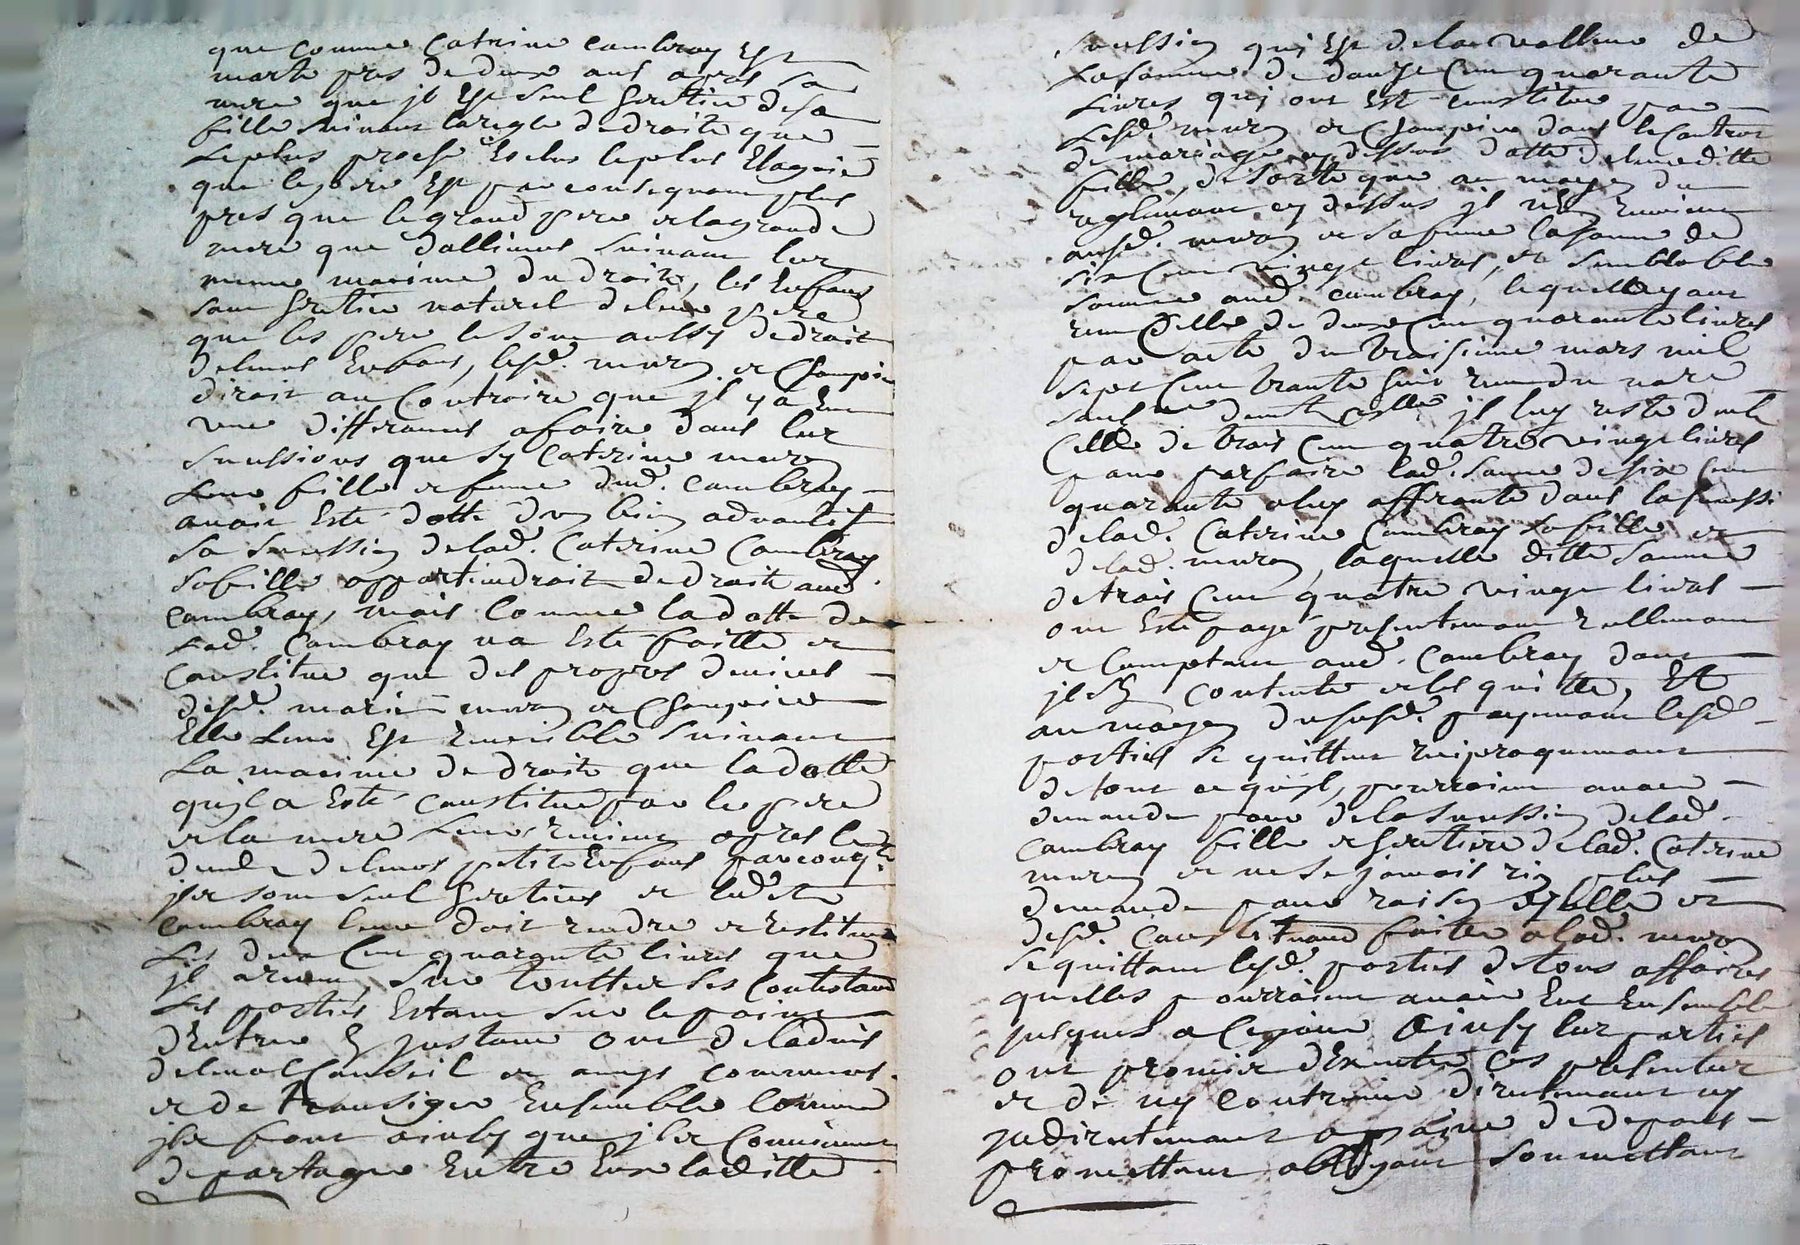 que comme Catrine Cambray Est
morte pres de deux ans apres sa
mere que jl Est seul heritier de sa
fille suivant la regle de droit que
le plus proche Exclus le plus Elognié
que le pere Est par consequant plus
pres que le grand pere et la grande
mere que dallieurs suivant lur
mesme maxime du droit, les Enfans
sont heritier naturel de leur pere
que les pere le sont aussy de droit
de leurs Enfans, lesd. muron et Chonpoin
diroit au Contraire que jl y a Eue
une differances afaire dans lur
sucssions que sy Caterine muron
leur fille et femme dud. Cambray
avoit Esté dotté dun bien advantif
sa sucssion de lad. Caterine Cambray
sa fille appartiendroit de droit aud.
Cambray, mais Comme la dotte de
lad. Cambray na Esté faitte et
Constitué que des propres deniers
desd. mariés muron et Chonpoin
Elle leur Est reversible suivant
La maxime de droit que la dotte
quj a Esté Constitué par le pere
et la mere leur revient apres le
deceds de leurs petits Enfans par consq.t
jls sont seul heritiers et led.
Cambray leur doit rendre et restituer
Les deux Cent quarante livres que
jl a receu, sur touttes ses Contestans
Les parties Estant sur le point
d'Entrer En jnstance ont de ladvis
de leurs Conseil et amys communs
et de transiger Ensemble Comme
jls font ainsy que jls Conviennent
de partager Entre Eux laditte
sucssion quj Est de la valleur de
La somme de douze Cent quarante
Livres quj ont Esté constitué par
Lesd. muron et Chonpoin dans le Contrat
de mariage cy dessus datté de leurditte
fille, de sorte que au moyen du
reglemant cy dessus jl revient
ausd. muron et sa femme la somme de
six Cent vingt livres, et semblable
somme aud. Cambray, lequelle ayant
receu Celle de deux Cent quarante livres
par acte du troisieme mars mil
sept Cent trante huit receu du notre
jl luy reste deub
Celle de trois Cent quatre vingt livres
pour parfaire lad. somme de six Cent
quarante a luy afferante dans la sucssi
de lad. Caterine Cambray sa fille et
de lad. muron, laquelle ditte somme
de trois Cent quatre vingt livres
ont Esté payé presentemant reellemant
et Comptant aud. Cambray dont
jl sEn Contente et les quitte, Et
au moyen du susd. payemant lesd.
parties se quittent reciproquemant
de tout ce quyl, pourroient avoir
demander pour de la sucssion de lad.
Cambray fille et heritiere de lad. Caterine
muron et ne se jamais rien plus
demander pour raison dycelle et
desd. faittes a lad. muron
se quittant lesd. parties de tous affaires
quelles pourroient avoir Eue Ensemble
jusques a Ce jour ainsy lur parties
ont promis dExecuter Ces presentes
et de ny Contrevenir directemant ny
jndirectemant a peine de depans
promettant obligeant Soumettant